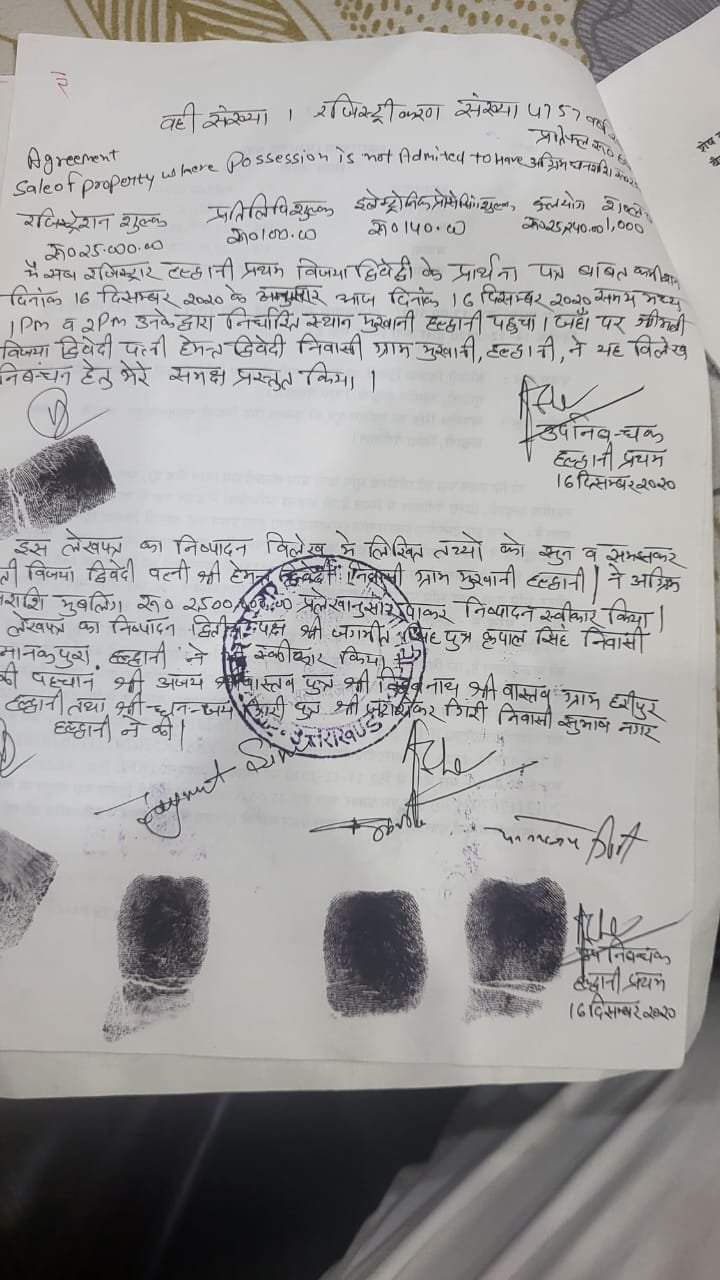 २
वही संख्या 1 रजिस्ट्रीकरण संख्या 4757 वर्ष
प्रतिफल रू०
Agreement
Sale of property where Possession is not Admitted to Have अग्रिम धनराशि
रजिस्ट्रेशन शुल्क प्रतिलिपि शुल्क इलेक्ट्रोनिक प्रोसेसिंग शुल्क कुलयोग
रू०25.000.00 रू०100.00 रू०140.00 रू०25,240.00 1,000
मैं सब रजिस्ट्रार हल्द्वानी प्रथम विजया द्विवेदी के प्रार्थना पत्र बाबित कमीशन
दिनांक 16 दिसम्बर 2020 के अनुसार आज दिनांक 16 दिसम्बर 2020 समय मध्य
1Pm व 2Pm उनके द्वारा निर्धारित स्थान मुखानी हल्द्वानी पहुचा। जहाँ पर श्रीमती
विजया द्विवेदी पत्नी हेमन्त द्विवेदी निवासी ग्राम मुखानी, हल्द्वानी, ने यह विलेख
निबन्धन हेतु मेरे समक्ष प्रस्तुत किया।
उपनिबन्धक
हल्द्वानी प्रथम
16 दिसम्बर 2020
इस लेखपत्र का निष्पादन विलेख मे लिखित तथ्यो को सुन व समझकर
विजया द्विवेदी पत्नी श्री हेमन्त द्विवेदी निवासी ग्राम मुखानी हल्द्वानी। ने अग्रिम
राशि मुबलिग रू० प्रलेखानुसार पाकर निष्पादन स्वीकार किया।
लेखपत्र का निष्पादन द्वितीय पक्ष श्री जगमीत सिंह पुत्र कृपाल सिंह निवासी
मानकपुरा. हल्द्वानी ने भी स्वीकार किया
की पहचान श्री अजय श्रीवास्तव पुत्र श्री विश्वनाथ श्रीवास्तव ग्राम हरीपुर
हल्द्वानी तथा श्री धनन्जय गिरी पुत्र श्री गिरी निवासी सुभाष नगर
हल्द्वानी ने की।
उप निबन्धक
हल्द्वानी प्रथम
16 दिसम्बर 2020